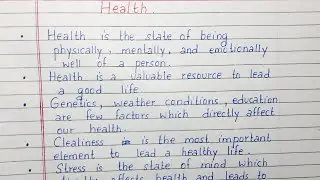 Health.
• Health is the state of being
physically, mentally, and emotionally
well of a person.
• Health is a valuable resource to lead
a good life
• Genetics, weather conditions, education
are few factors which directly affect
our health.
• Cleanliness is the most important
element to lead a healthy life.
• Stress is the state of mind which
affects health and leads to